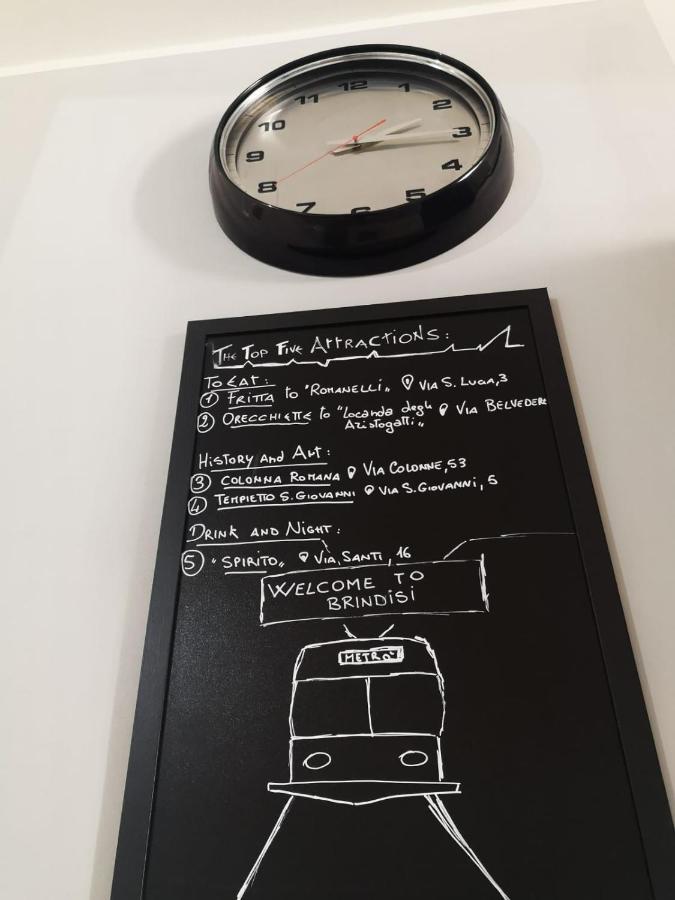 12
1
2
3
4
5
6
7
8
9
10
11
THE TOP FIVE ATTRACTIONS:
TO EAT:
1 FRITTA to "ROMANELLI" VIA S. LUCA, 3
2 ORECCHIETTE to "Locanda degli VIA BELVEDERE
Aristogatti"
HISTORY AND ART:
3 COLONNA ROMANA VIA COLONNE, 53
4 TEMPIETTO S. GIOVANNI VIA S. GIOVANNI, 5
DRINK AND NIGHT:
5 "SPIRITO" VIA SANTI, 16
WELCOME TO
BRINDISI
METRO